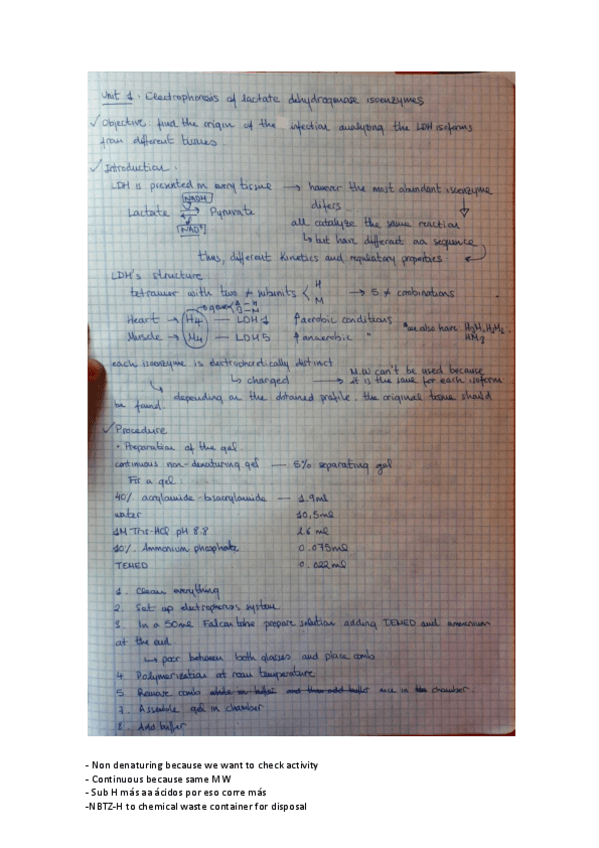 Unit 1: Electrophoresis of lactate dehydrogenase isoenzymes
✓ Objective: find the origin of the infection analyzing the LDH isoforms
from different tissues
✓ Introduction:
LDH is presented in every tissue → however the most abundant isoenzyme
differs
NADH
Lactate ⇄ Pyruvate
NAD+
all catalyze the same reaction
↳ but have different aa sequence
thus, different kinetics and regulatory properties
LDH's structure
tetramer with two ≠ subunits < H M → 5 ≠ combinations
Heart → H4 — LDH 1 ↑ aerobic conditions
Muscle → M4 — LDH 5 ↑ anaerobic "
each isoenzyme is electrophoretically distinct
↳ charged → M.W can't be used because
it is the same for each isoform
↳ depending on the obtained profile, the original tissue should
be found.
✓ Procedure
• Preparation of the gel.
continuous non-denaturing gel — 5% separating gel
For a gel:
40% acrylamide-bisacrylamide — 1.9ml
water 10,5ml
1M Tris-HCl pH 8.8 2.6 ml
10% Ammonium phosphate 0.075ml
TEMED 0.022ml
1. Clean everything
2. Set up electrophoresis system
3. In a 50ml Falcon tube prepare solution adding TEMED and ammonium
at the end.
↳ poor between both glasses and place comb
4. Polymerization at room temperature
5. Remove comb once in the chamber.
7. Assemble gel in chamber
8. Add buffer
- Non denaturing because we want to check activity
- Continuous because same MW
- Sub H más aa ácidos por eso corre más
-NBTZ-H to chemical waste container for disposal